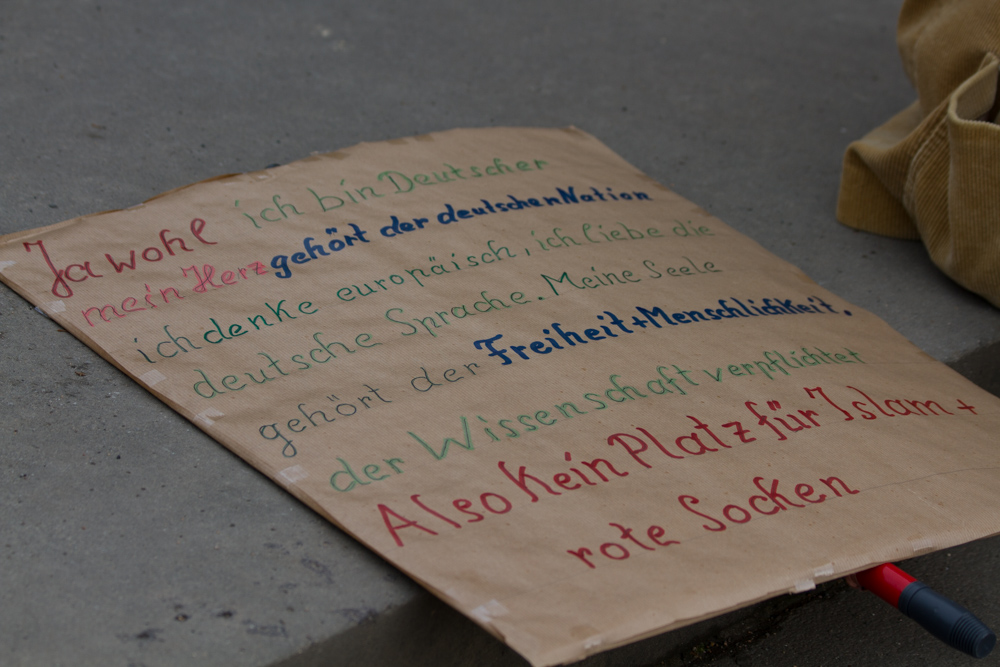 Jawohl ich bin Deutscher
mein Herz gehört der deutschen Nation
ich denke europäisch, ich liebe die
deutsche Sprache. Meine Seele
gehört der Freiheit + Menschlichkeit,
der Wissenschaft verpflichtet
Also Kein Platz für Islam +
rote Socken